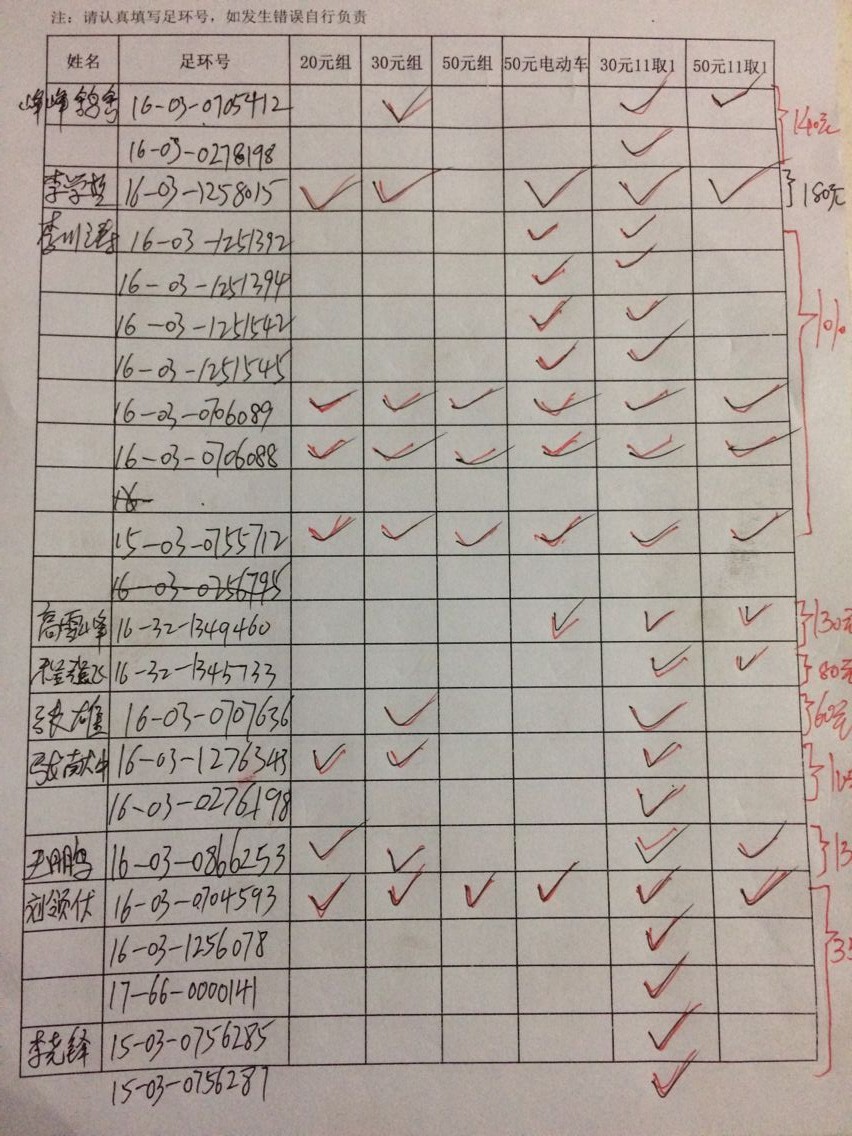 注：请认真填写足环号，如发生错误自行负责
姓名 足环号 20元组 30元组 50元组 50元电动车 30元11取1 50元11取1
峰峰鸽舍 16-03-0705412 ✓ ✓ ✓ 140元
16-03-0278198 ✓
李学 16-03-1258015 ✓ ✓ ✓ ✓ ✓ 180元
李川 16-03-1251392 ✓ ✓
16-03-1251394 ✓ ✓
16-03-1251542 ✓ ✓
16-03-1251545 ✓ ✓
16-03-0706089 ✓ ✓ ✓ ✓ ✓ ✓
16-03-0706088 ✓ ✓ ✓ ✓ ✓ ✓
15-03-0755712 ✓ ✓ ✓ ✓ ✓ ✓
16-03-0256795
高雪峰 16-32-1349460 ✓ ✓ ✓ 130元
16-32-1345733 ✓ ✓ 80元
16-03-0707636 ✓ ✓ 60元
张献 16-03-1276343 ✓ ✓ ✓
16-03-0276198 ✓
王鹏 16-03-0866253 ✓ ✓ ✓ ✓ 13
刘领伏 16-03-0704593 ✓ ✓ ✓ ✓ ✓ ✓
16-03-1256078 ✓
17-66-0000141 ✓
李尧铎 15-03-0756285 ✓
15-03-0756287 ✓